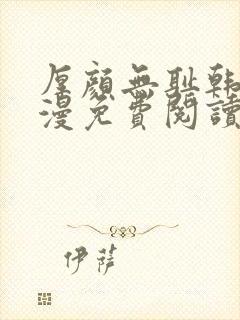 厚顔無恥韩
漫免費閱讀
伊薩